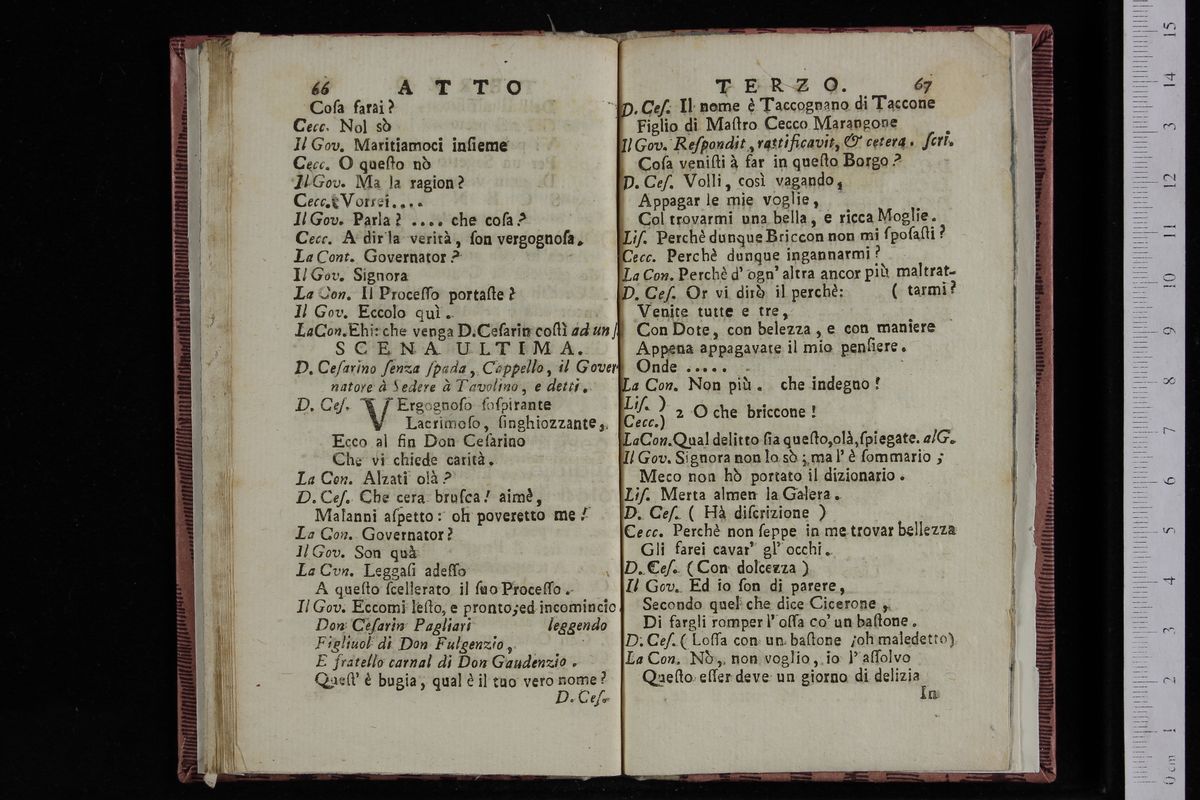 66 ATTO
Coſa farai?
Cecc. Nol sò
Il Gov. Maritiamoci inſieme
Cecc. O queſto nò
Il Gov. Ma la ragion?
Cecc. Vorrei....
Il Gov. Parla? .... che coſa?
Cecc. A dir la verità, ſon vergognoſa.
La Cont. Governator?
Il Gov. Signora
La Con. Il Proceſſo portaſte?
Il Gov. Eccolo quì.
La Con. Ehi: che venga D. Ceſarin coſtì ad un ſ
SCENA ULTIMA.
D. Ceſarino ſenza ſpada, Cappello, il Gover
natore à Sedere à Tavolino, e detti.
D. Ceſ. VErgognoſo ſoſpirante
Lacrimoſo, ſinghiozzante,
Ecco al fin Don Ceſarino
Che vi chiede carità.
La Con. Alzati olà?
D. Ceſ. Che cera bruſca! aimè,
Malanni aſpetto: oh poveretto me!
La Con. Governator?
Il Gov. Son quà
La Cvn. Leggaſi adeſſo
A queſto ſcellerato il ſuo Proceſſo.
Il Gov. Eccomi leſto, e pronto; ed incomincio
Don Ceſarin Pagliari leggendo
Figliuol di Don Fulgenzio,
E fratello carnal di Don Gaudenzio.
Queſt' è bugia, qual è il tuo vero nome?
D. Ceſ.
TERZO. 67
D. Ceſ. Il nome è Taccognano di Taccone
Figlio di Maſtro Cecco Marangone
Il Gov. Reſpondit, rattificavit, & cetera. ſcri.
Coſa veniſti à far in queſto Borgo?
D. Ceſ. Volli, così vagando,
Appagar le mie voglie,
Col trovarmi una bella, e ricca Moglie.
Liſ. Perchè dunque Briccon non mi ſpoſaſti?
Cecc. Perchè dunque ingannarmi?
La Con. Perchè d' ogn' altra ancor più maltrat-
D. Ceſ. Or vi dirò il perchè: ( tarmi?
Venite tutte e tre,
Con Dote, con belezza, e con maniere
Appena appagavate il mio penſiere.
Onde .....
La Con. Non più. che indegno!
Liſ. )
2 O che briccone!
Cecc.)
La Con. Qual delitto ſia queſto, olà, ſpiegate. al G.
Il Gov. Signora non lo sò; ma l' è ſommario;
Meco non hò portato il dizionario.
Liſ. Merta almen la Galera.
D. Ceſ. ( Hà diſcrizione )
Cecc. Perchè non ſeppe in me trovar bellezza
Gli farei cavar' gl' occhi.
D. Ceſ. (Con dolcezza)
Il Gov. Ed io ſon di parere,
Secondo quel che dice Cicerone,
Di fargli romper l' oſſa co' un baſtone.
D. Ceſ. ( Loſſa con un baſtone ; oh maledetto)
La Con. Nò, non voglio, io l' aſſolvo
Queſto eſſer deve un giorno di delizia
In
0 cm 1 2 3 4 5 6 7 8 9 10 11 12 13 14 15